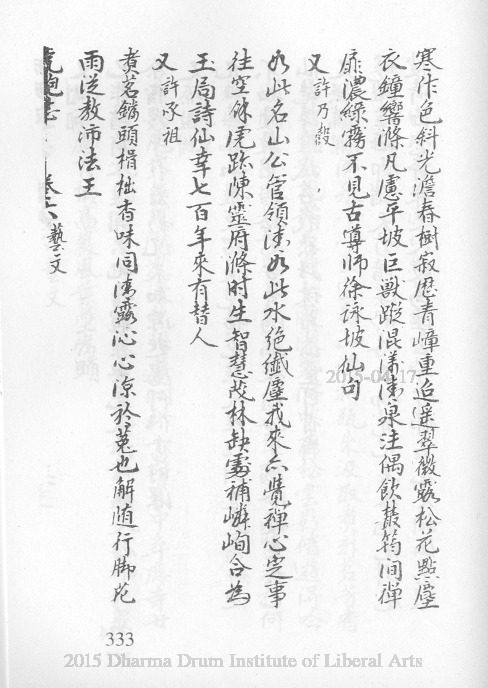 寒作色斜光澹春樹寂歷青嶂重迢遞翠微露松花點塵
衣鐘響滌凡慮平坡巨獸蹤混漾清泉注偶飲叢筠間禪
扉濃綠霧不見古尊師徐詠坡仙句
又許乃穀
如此名山公管領清如此水絕纖塵我來亦覺禪心定事
往空餘虎跡陳靈府滌時生智慧茂林缺處補嶙峋合為
玉局詩仙幸七百年來有替人
又許乃祖
煮茗鑱頭榾柮香味同清露沁心涼於菟也解随行脚花
雨從教沛法王
虎跑 卷六藝文
333
2015-04-17
2015 Dharma Drum Institute of Liberal Arts